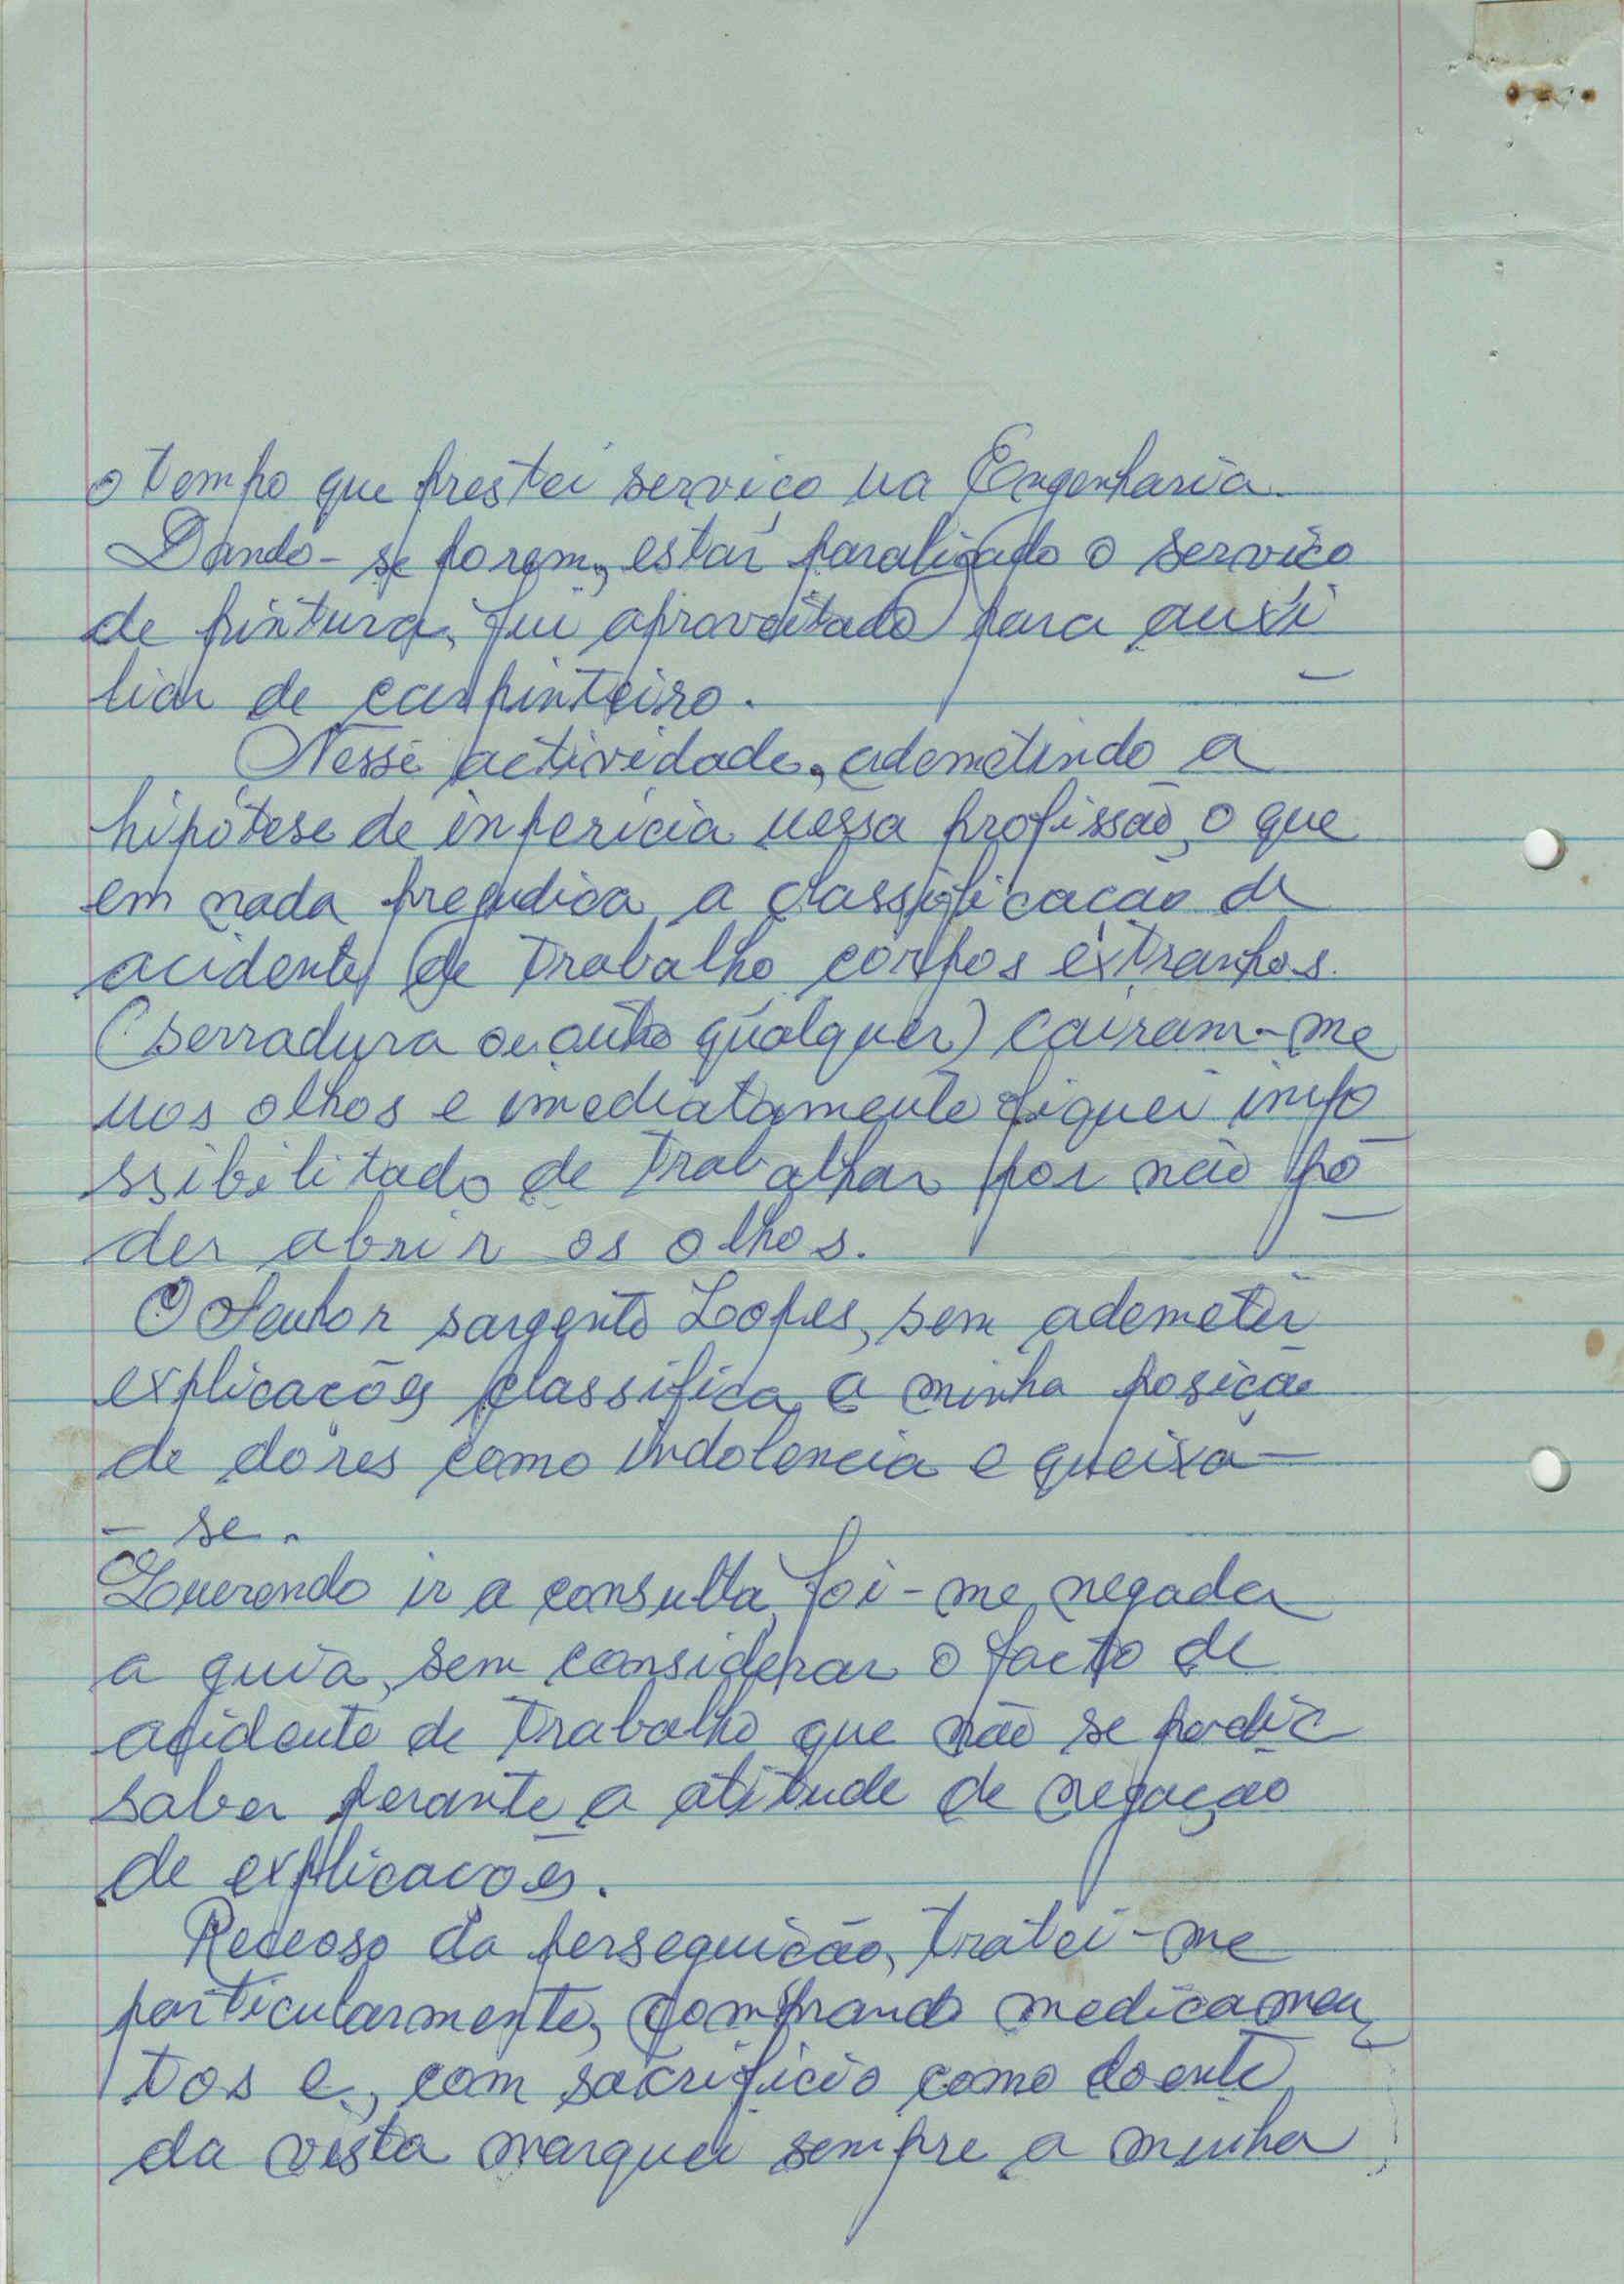 o tempo que prestei serviço na Engenharia.
Dando-se porem, estar paralizado o serviço
de pintura, fui aproveitado para auxi
liar de carpinteiro.
Nesse actividade, ademetindo a
hipótese de inpericia nessa profissão, o que
em nada prejudica a classificação de
acidente de trabalho corpos extranhos.
(serradura ou outro qualquer) cairam-me
nos olhos e imediatamente fiquei impo
ssibilitado de trabalhar por não po
der abrir os olhos.
O Senhor sargento Lopes, sem ademetir
explicações classifica a minha posição
de dores como indolencia e queixa-
- se.
Querendo ir a consulta, foi-me negada
a guia, sem considerar o facto de
acidente de trabalho que não se podia
saber perante a atitude de negação
de explicações.
Receoso da perseguição, tratei-me
particularmente, comprando medicamen
tos e, com sacrificio como doente
da vista marquei sempre a minha